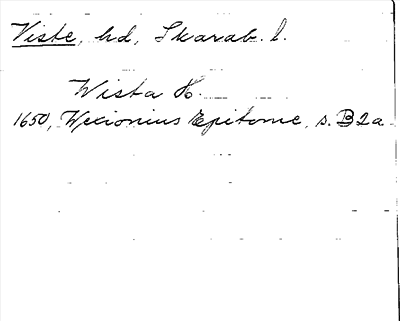 Viste, hd, Skarab. l.
Wista H.
1650, Wexionius Epitome, s. B2a